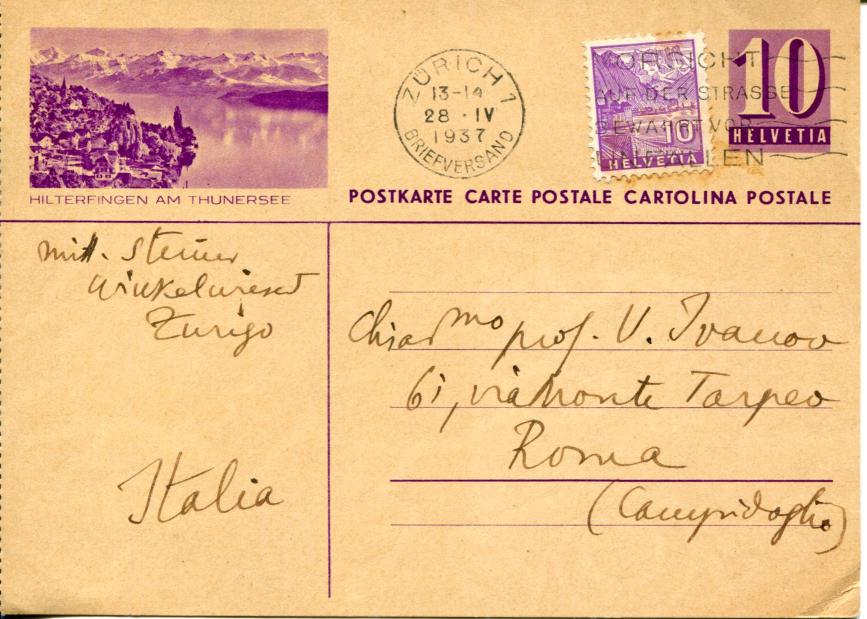 HILTERFINGEN AM THUNERSEE
ZÜRICH 1
13-14
28 · IV
1937
BRIEFVERSAND
VORSICHT
AUF DER STRASSE
BEWAHRT VOR
UNFÄLLEN
10
HELVETIA
10
HELVETIA
POSTKARTE CARTE POSTALE CARTOLINA POSTALE
mitt. Steiner
Winkelwiese
Zurigo
Italia
Chiarmo prof. V. Ivanov
61, via Monte Tarpeo
Roma
(Campidoglio)